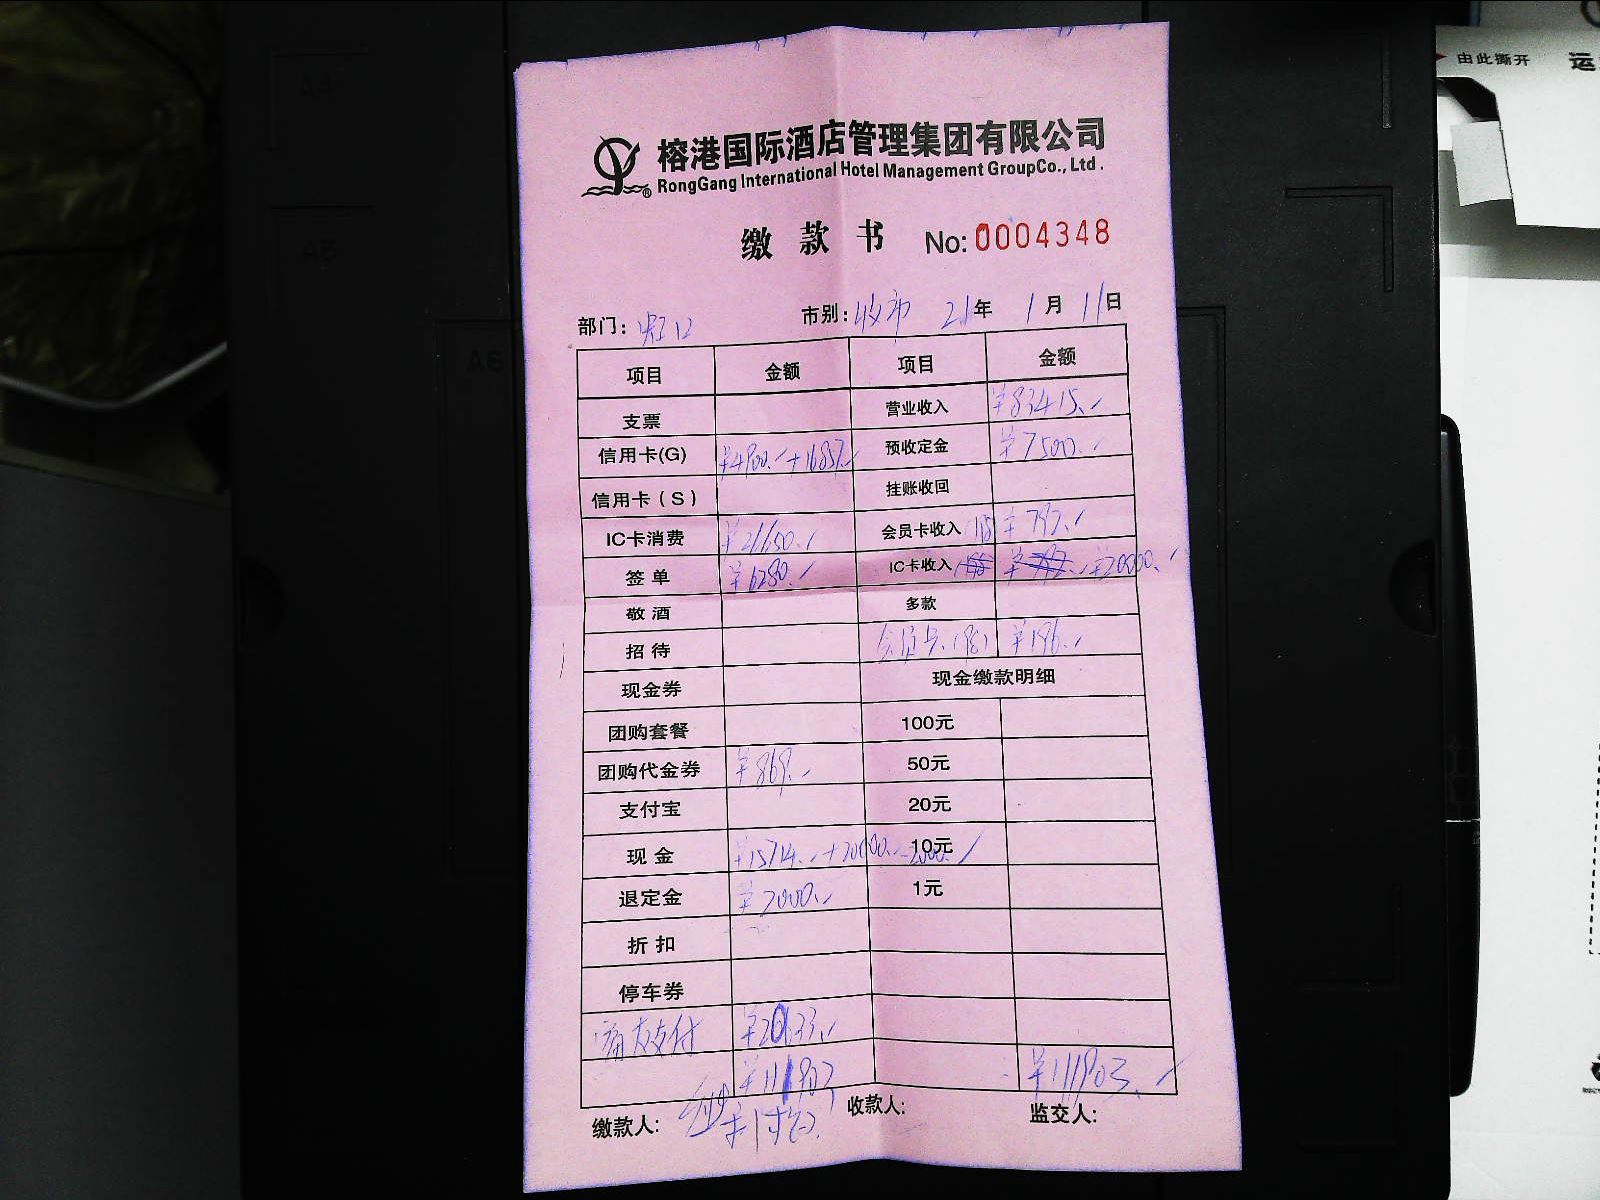 由此撕开 运
榕港国际酒店管理集团有限公司
RongGang International Hotel Management GroupCo., Ltd.
缴款书 No: 0004348
部门: 虹口 市别: 收市 21年 1月 11日
项目 金额 项目 金额
支票 营业收入 ¥83415.
信用卡(G) ¥4900. +16857. 预收定金 ¥7500.
信用卡(S) 挂账收回
IC卡消费 ¥21650. 会员卡收入 ¥792.
签单 ¥6280. IC卡收入 ¥20000.
敬酒 多款
招待 会员卡 ¥196.
现金券 现金缴款明细
团购套餐 100元
团购代金券 ¥869. 50元
支付宝 20元
现金 ¥15714. +20000. -2000. 10元
退定金 ¥2000. 1元
折扣
停车券
支付 ¥20633.
¥111903 ¥111903.
缴款人: 收款人: 监交人: